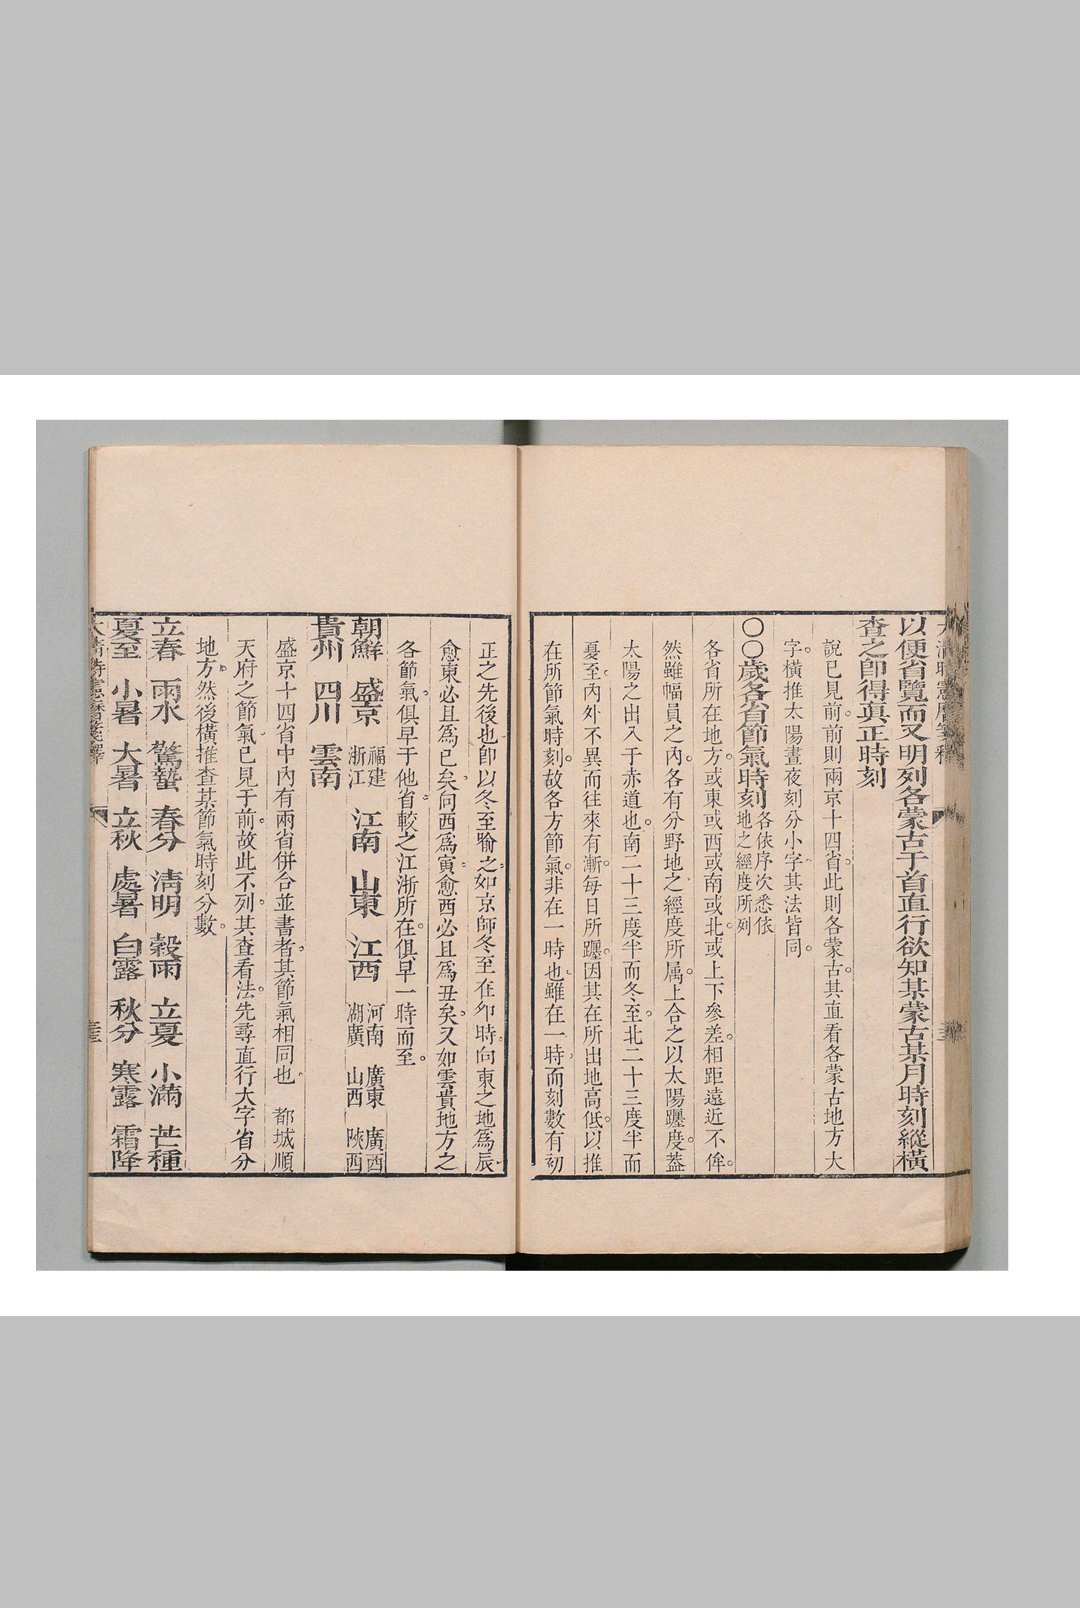 以便省覽而又明列各蒙古于首直行欲知某蒙古某月時刻縱橫
查之卽得真正時刻
說已見前前則兩京十四省此則各蒙古其直看各蒙古地方大
字橫推太陽晝夜刻分小字其法皆同
〇〇歲各省節氣時刻各依序次悉依
地之經度所列
各省所在地方或東或西或南或北或上下參差相距遠近不侔
然雖幅員之內各有分野地之經度所属上合之以太陽躔度蓋
太陽之出入于赤道也南二十三度半而冬至北二十三度半而
夏至內外不異而往來有漸每日所躔因其在所出地高低以推
在所節氣時刻故各方節氣非在一時也雖在一時而刻數有初
正之先後也卽以冬至喻之如京師冬至在夘時向東之地爲辰
愈東必且爲巳矣向西爲寅愈西必且爲丑矣又如雲貴地方之
各節氣俱早于他省較之江浙所在俱早一時而至
朝鮮 盛京 福建 浙江 江南 山東 江西 河南 湖廣 廣東 山西 廣西 陜西
貴州 四川 雲南
盛京十四省中內有兩省併合並書者其節氣相同也 都城順
天府之節氣已見于前故此不列其查看法先尋直行大字省分
地方然後橫推查某節氣時刻分數
立春 雨水 驚蟄 春分 清明 穀雨 立夏 小滿 芒種
夏至 小暑 大暑 立秋 處暑 白露 秋分 寒露 霜降
大清時憲曆箋釋